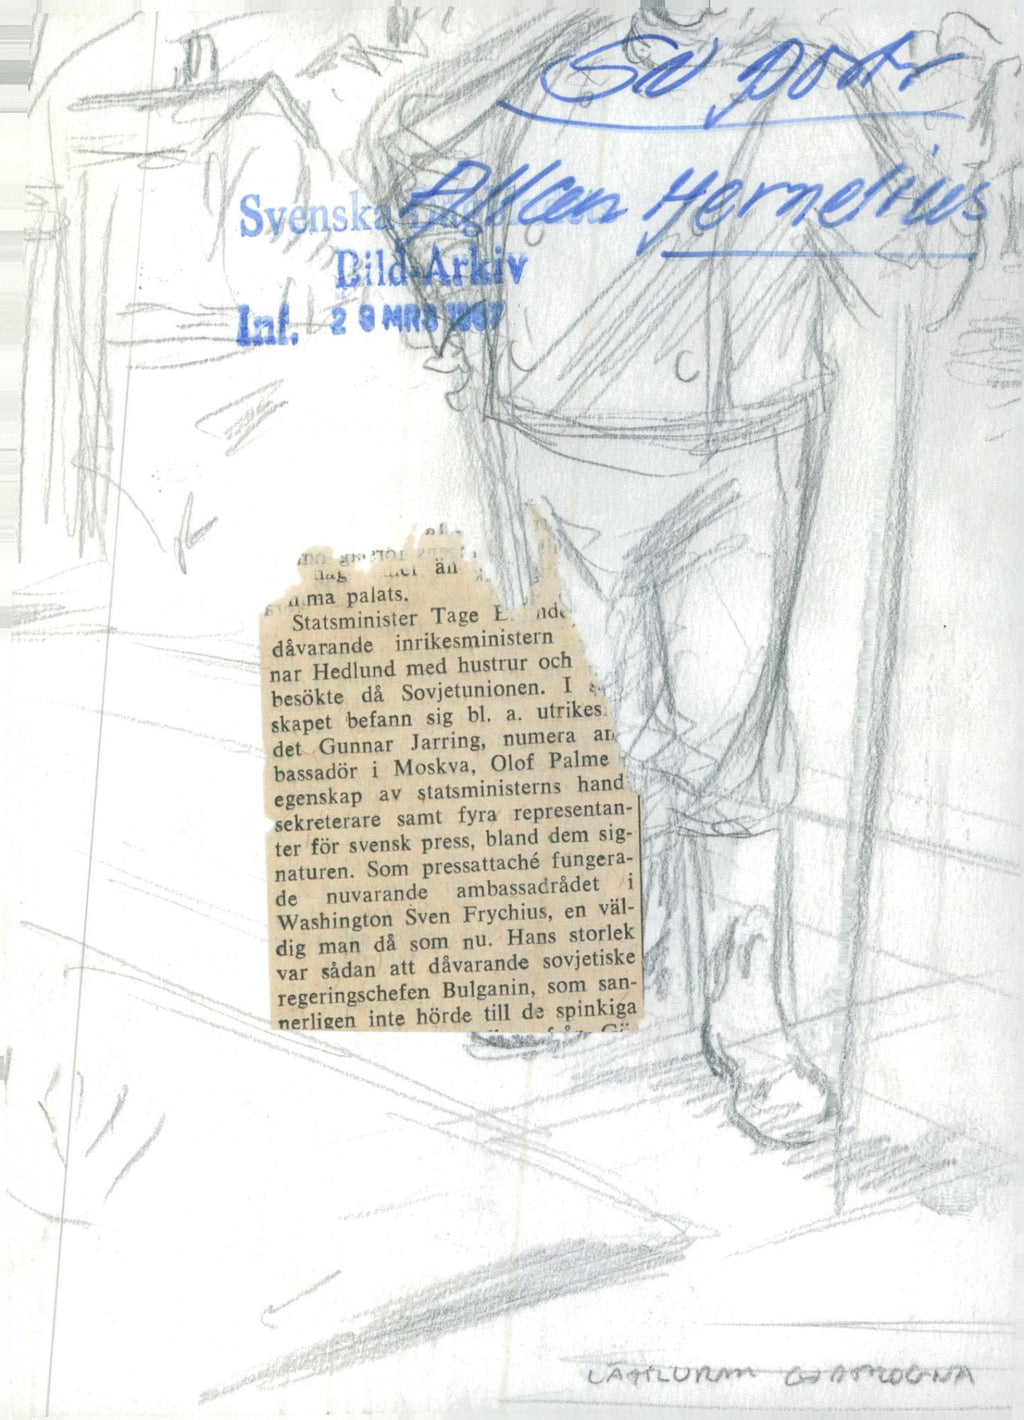 Allan Hernelius
Svenska
Bild-Arkiv
Inl. 29 MRS 1967
än
palats.
Statsminister Tage
dåvarande inrikesministern
nar Hedlund med hustrur och
besökte då Sovjetunionen. I
skapet befann sig bl. a. utrikes
det Gunnar Jarring, numera am
bassadör i Moskva, Olof Palme
egenskap av statsministerns hand
sekreterare samt fyra representan-
ter för svensk press, bland dem sig-
naturen. Som pressattaché fungera-
de nuvarande ambassadrådet i
Washington Sven Frychius, en väl-
dig man då som nu. Hans storlek
var sådan att dåvarande sovjetiske
regeringschefen Bulganin, som san-
nerligen inte hörde till de spinkiga